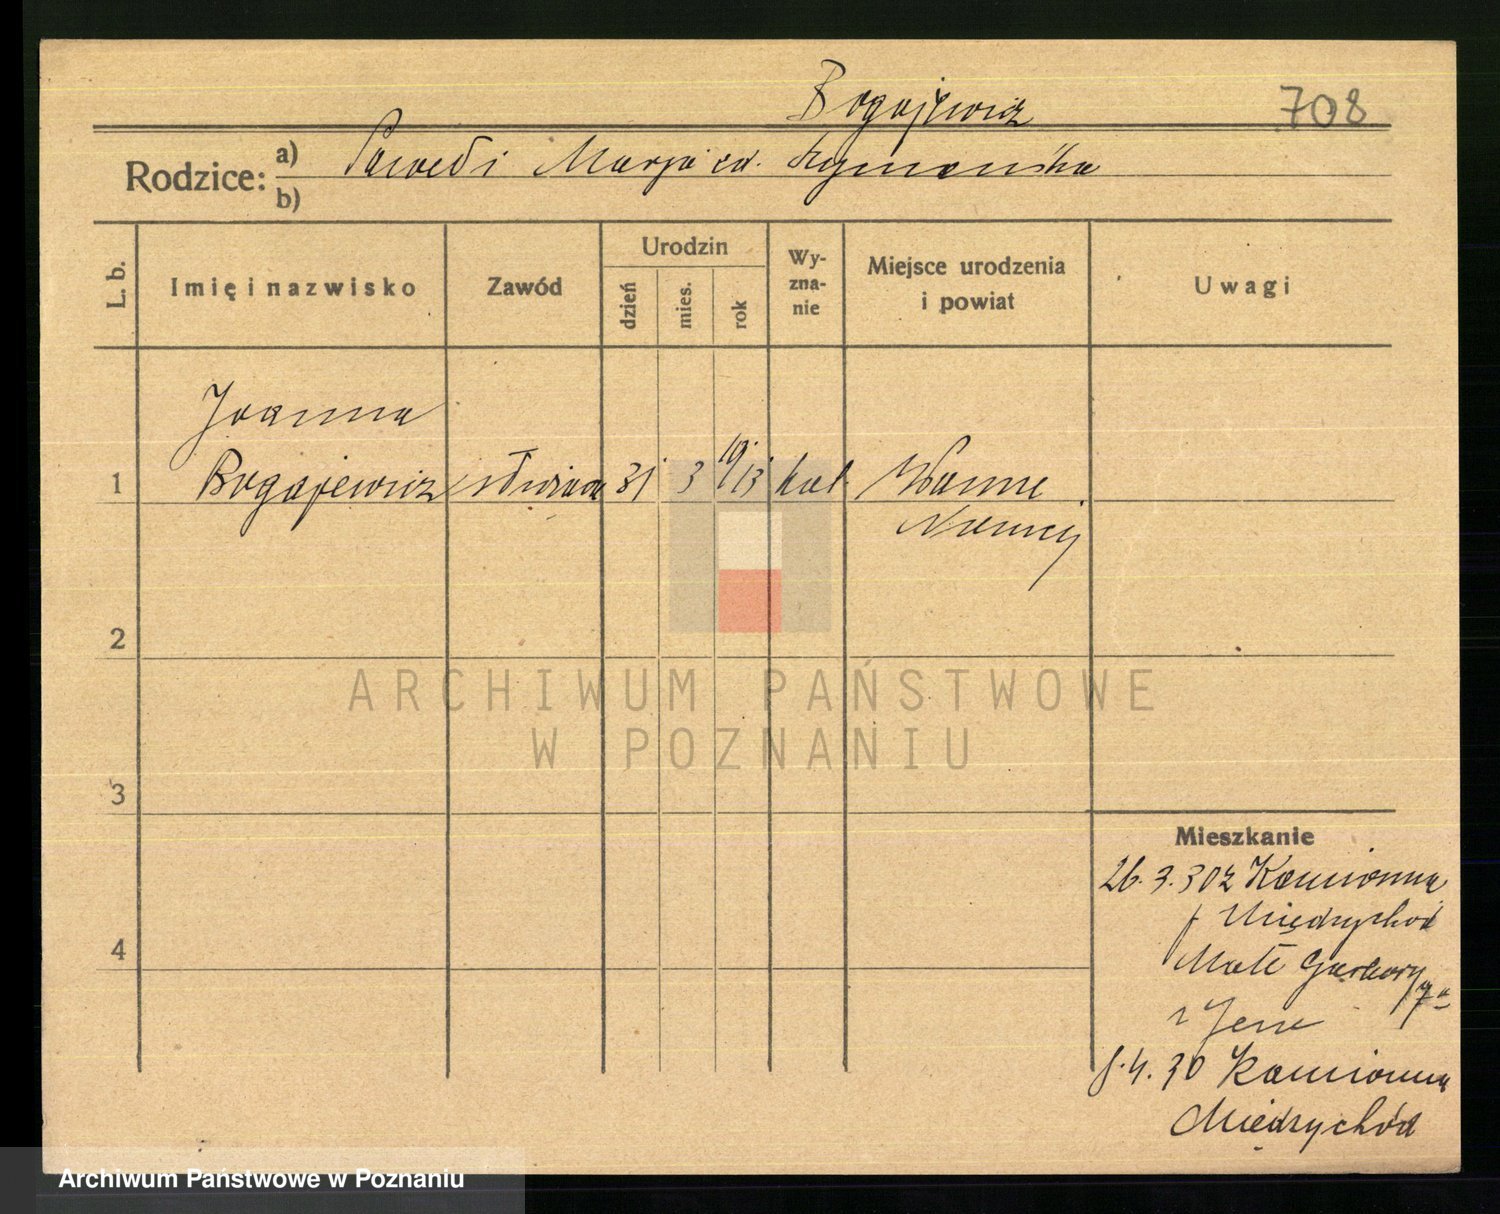 Bogajewicz
708
Rodzice:
a) Paweł i Marja cd. Szymańska
b)
L. b.
Imię i nazwisko
Zawód
Urodzin
dzień
mies.
rok
Wy-
zna-
nie
Miejsce urodzenia
i powiat
Uwagi
Joanna
1 Bogajewicz 31 3 19/13 kat. Wanne
Niemcy
2
3
4
Mieszkanie
26. 3. 30 z Kamionna
p Międzychód
Małe Garbary
7a
z Jerz
8. 4. 30 Kamionna
Międzychód
ARCHIWUM PAŃSTWOWE
W POZNANIU
Archiwum Państwowe w Poznaniu